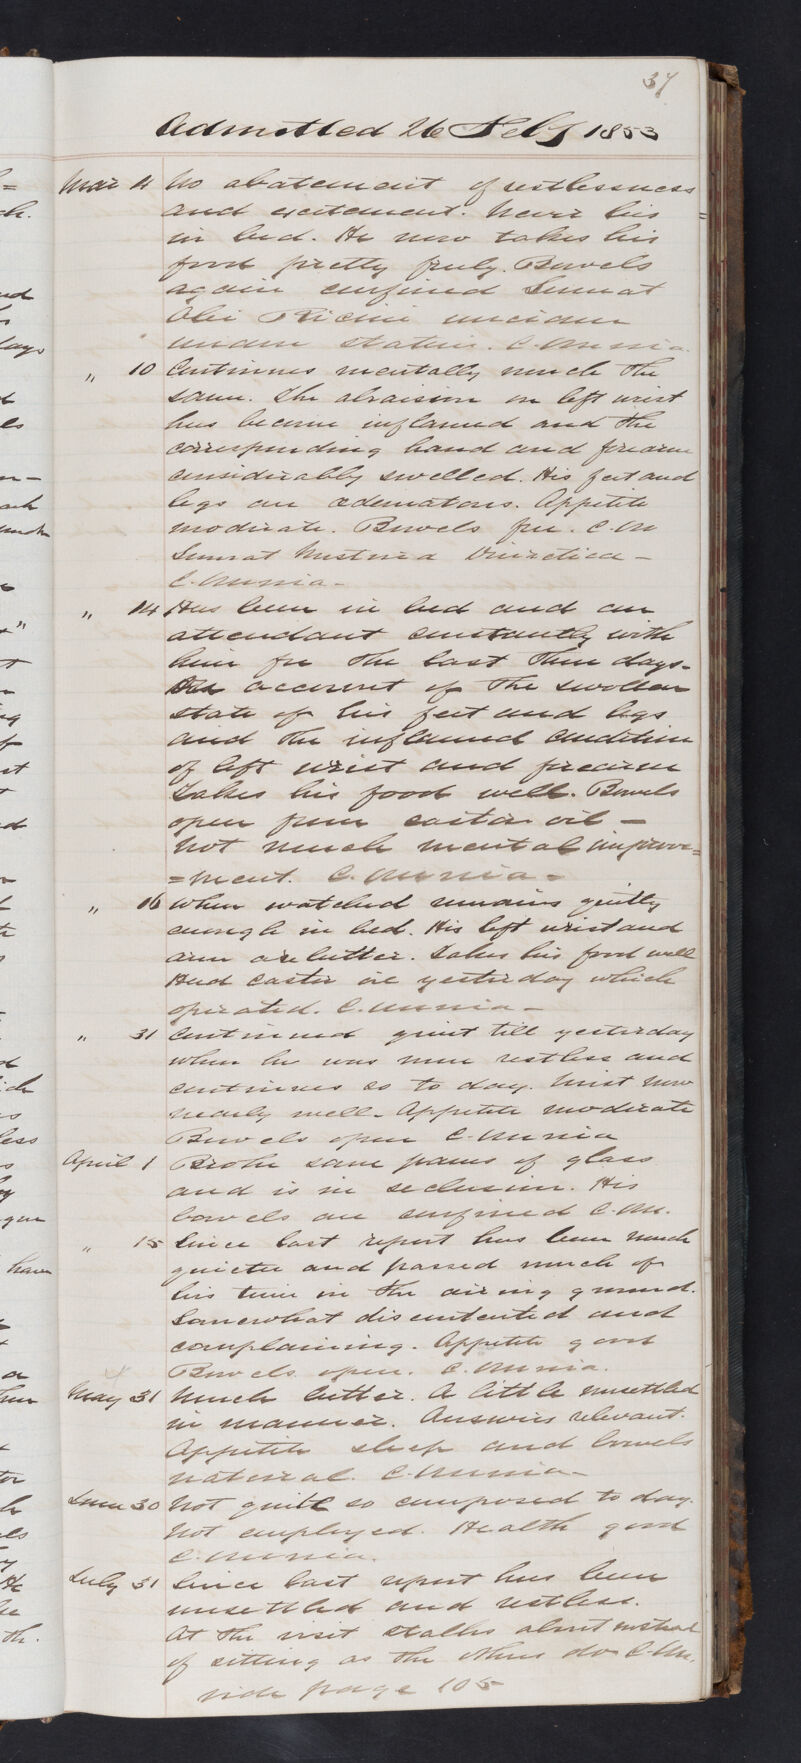 37
Admitted 26 Feby 1853
Mar 4 No abatement of restlessness
and excitement. Never lies
in bed. He now takes his
food pretty freely. Bowels
again confined Sumat
Olei Ricini unciam
unam statim. C. Mania
" 10 Continues mentally much the
same. The abraision on left wrist
has become inflamed and the
corresponding hand and forearm
considerably swelled. His feet and
legs are œdematous. Appetite
moderate. Bowels free. C. M
Sumat Mistura Diuretica –
C. Mania –
" 14 Has been in bed and an
attendant constantly with
him for the last three days –
on account of the swollen
state of his feet and legs
and the inflamed condition
of left wrist and forearm
Takes his food well. Bowels
open from castor oil –
Not much mental improve=
=ment. C. Mania –
" 16 When watched remains quietly
enough in bed. His left wrist and
arm are better. Takes his food well
Had castor oil yesterday which
operated. C. Mania –
" 31 Continued quiet till yesterday
when he was more restless and
continues so to day. Wrist now
nearly well – Appetite moderate
Bowels open C. Mania
April 1 Broke some panes of glass
and is in seclusion. His
bowels are confined C. M.
" 15 Since last report has been much
quieter and passed much of
his time in the airing ground.
Somewhat discontented and
complaining. Appetite good
Bowels open. C. Mania.
May 31 Much better. A little unsettled
in manner. Answers relevant.
Appetite sleep and bowels
natural. C. Mania –
June 30 Not quite so composed to day.
Not employed. Health good
C. Mania.
July 31 Since last report has been
unsettled and restless.
At the visit stalks about instead
of sitting as the others do C. M.
vide page 105